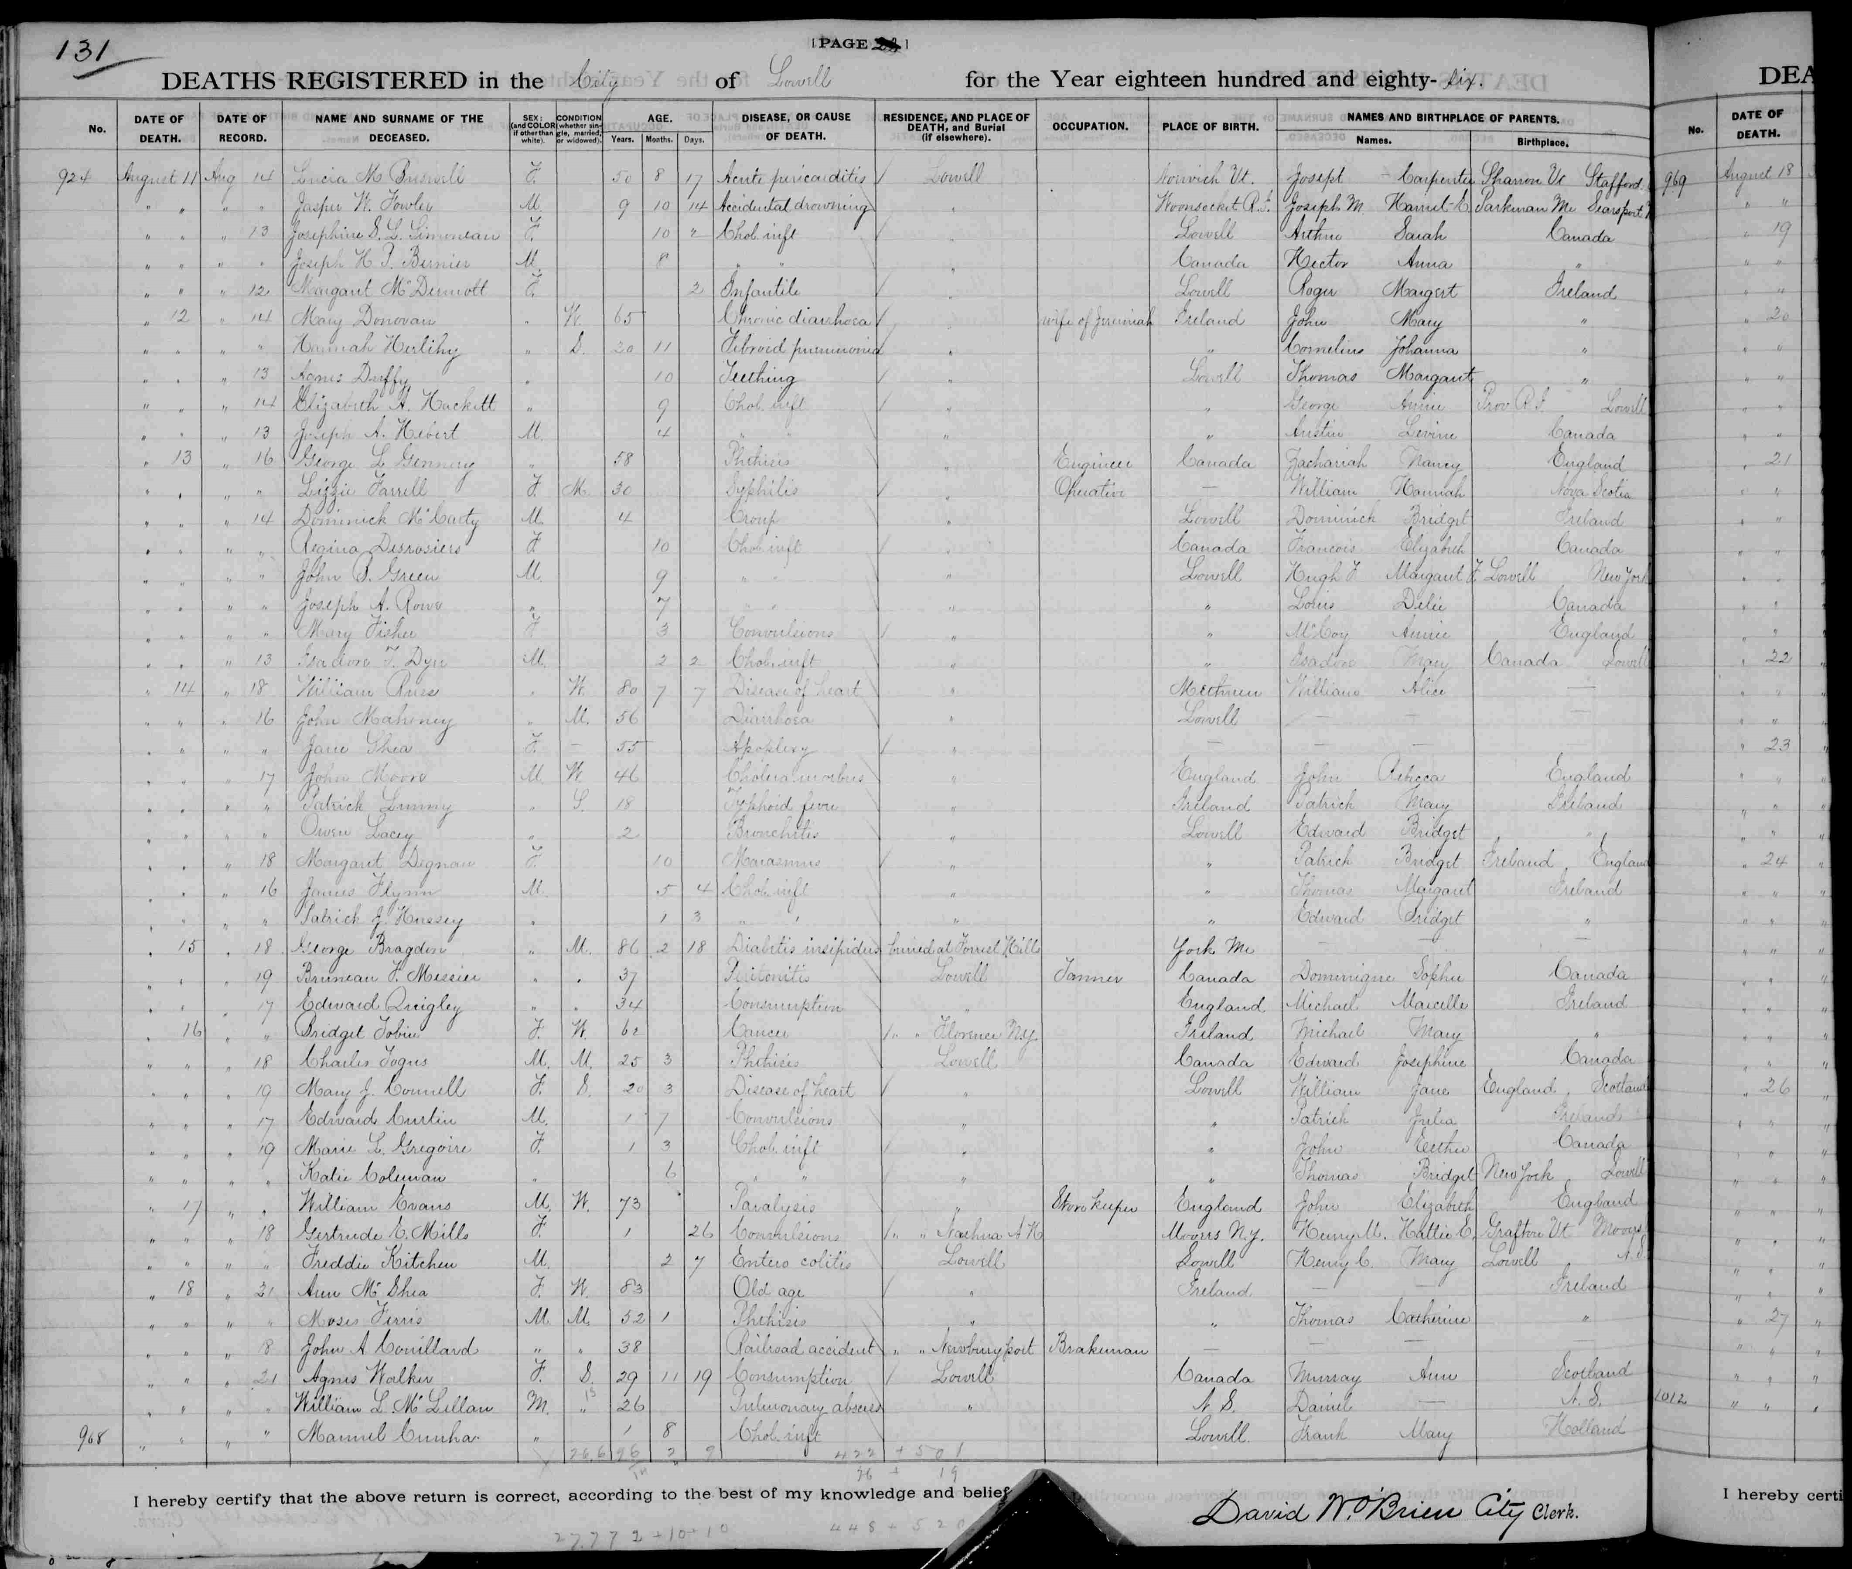 131
PAGE
DEATHS REGISTERED in the City of Lowell for the Year eighteen hundred and eighty-six.
No. DATE OF DEATH. DATE OF RECORD. NAME AND SURNAME OF THE DECEASED. SEX; (and COLOR if other than white). CONDITION (whether single, married, or widowed). AGE. Years. Months. Days. DISEASE, OR CAUSE OF DEATH. RESIDENCE, AND PLACE OF DEATH, and Burial (if elsewhere). OCCUPATION. PLACE OF BIRTH. NAMES AND BIRTHPLACE OF PARENTS. Names. Birthplace.
924 August 11 Aug 14 Lucia M. F. 50 8 17 Acute pericarditis / Lowell Norwich Vt. Joseph — Carpenter Sharon Vt Stafford
" " " " Jasper W. Fowler M. 9 10 14 Accidental drowning " Woonsocket R.I. Joseph M Harriet E. Parkman Me Searsport
" " " 13 Josephine S. L. Simoneau F. 10 2 Chol. inft / " Lowell Arthur Sarah Canada
" " " " Joseph H. P. Bernier M. 8 " " " Canada Hector Anna "
" " " 12 Margaret McDermott F. 2 Infantile / " Lowell Roger Margert Ireland
" 12 " 14 Mary Donovan " W. 65 Chronic diarrhoea / " wife of Jeremiah Ireland John Mary "
" " " " Hannah Herlihy " S. 20 11 Fibroid pneumonia " " Cornelius Johanna "
" " " 13 Agnes Duffy " 10 Teething / " Lowell Thomas Margaret "
" " " 14 Elizabeth A. Hackett " 9 Chol. inft / " " George Annie Prov. R.I. Lowell
" " " 13 Joseph A. Hebert M. 4 " " " " Austin Levine Canada
" 13 " 16 George L. " 58 Phthisis " Engineer Canada Zachariah Nancy England
" " " " Lizzie Farrell F. M. 30 Syphilis / " Operative — William Hannah Nova Scotia
" " " 14 Dominick McCarty M. 4 Croup " Lowell Dominick Bridget Ireland
" " " " Regina Desrosiers F. 10 Chol. inft / " Canada Francois Elizabeth Canada
" " " " John B. Green M. 9 " " " Lowell Hugh F Margaret F Lowell New York
" " " " Joseph A. Rowe " 7 " " " " Louis Delie Canada
" " " " Mary Fisher F. 3 Convulsions / " " McCoy Annie England
" " " 13 Isadore F. M. 2 2 Chol. inft " " Isadore Mary Canada Lowell
" 14 " 18 William " W. 80 7 7 Disease of heart " Methuen William Alice —
" " " 16 John Mahoney " M. 56 Diarrhoea " Lowell — — —
" " " " Jane Shea F. — 55 Apoplexy / " — — —
" " " 17 John Moore M. W. 46 Cholera morbus " England John Rebecca England
" " " " Patrick " S. 18 Typhoid fever " Ireland Patrick Mary Ireland
" " " " Owen Lacey " 2 Bronchitis " Lowell Edward Bridget "
" " " 18 Margaret Dignan F. 10 Marasmus / " " Patrick Bridget Ireland England
" " " 16 James Flynn M. 5 4 Chol. inft " " Thomas Margaret Ireland
" " " " Patrick J. Hussey " 1 3 " " " " Edward Bridget "
" 15 " 18 George Bragdon " M. 86 2 18 Diabetis insipidus buried at Forrest Hill York Me — — —
" " " 19 F. Messier " " 37 Peritonitis Lowell Tanner Canada Dominique Sophie Canada
" " " 17 Edward Quigley " " 34 Consumption " England Michael Marcella Ireland
" 16 " " Bridget Tobin F. W. 62 Cancer / " " Florence N.Y. Ireland Michael Mary "
" " " 18 Charles Togus M. M. 25 3 Phthisis Lowell Canada Edward Josephine Canada
" " " 19 Mary J. Connell F. S. 20 3 Disease of heart / " Lowell William Jane England Scotland
" " " 17 Edward Curtin M. 1 7 Convulsions " " Patrick Julia Ireland
" " " 19 Marie L. Gregoire F. 1 3 Chol. inft / " " John Canada
" " " " Katie Coleman " 6 " " / " " Thomas Bridget New York Lowell
" 17 " " William Evans M. W. 73 Paralysis " Storekeeper England John Elizabeth England
" " " 18 Gertrude E. Mills F. 1 26 Convulsions / " " Nashua N H Moors N.Y. Henry M. Hattie E. Grafton Vt Moors
" " " " Freddie Kitchen M. 2 7 Entero colitis Lowell Lowell Henry C. Mary Lowell
" 18 " 21 Ann McShea F. W. 83 Old age / " Ireland — — Ireland
" " " " Moses Ferris M. M. 52 1 Phthisis " " Thomas Catherine "
" " " 8 John A Couillard " " 38 Railroad accident " " Newburyport Brakeman — — — —
" " " 21 Agnes Walker F. S. 29 11 19 Consumption / Lowell Canada Murray Ann Scotland
" " " " William L. McLellan M. " 26 Pulmonary abscess " N. S. Daniel — N. S.
968 " " " " Manuel Cunha " 1 8 Chol. inft Lowell. Frank Mary Holland
I hereby certify that the above return is correct, according to the best of my knowledge and belief
David W. O'Brien City Clerk.
DEA
No. DATE OF DEATH.
969 August 18
" 19
" 20
" 21
" 22
" 23
" 24
" 26
" 27
1012
I hereby certi